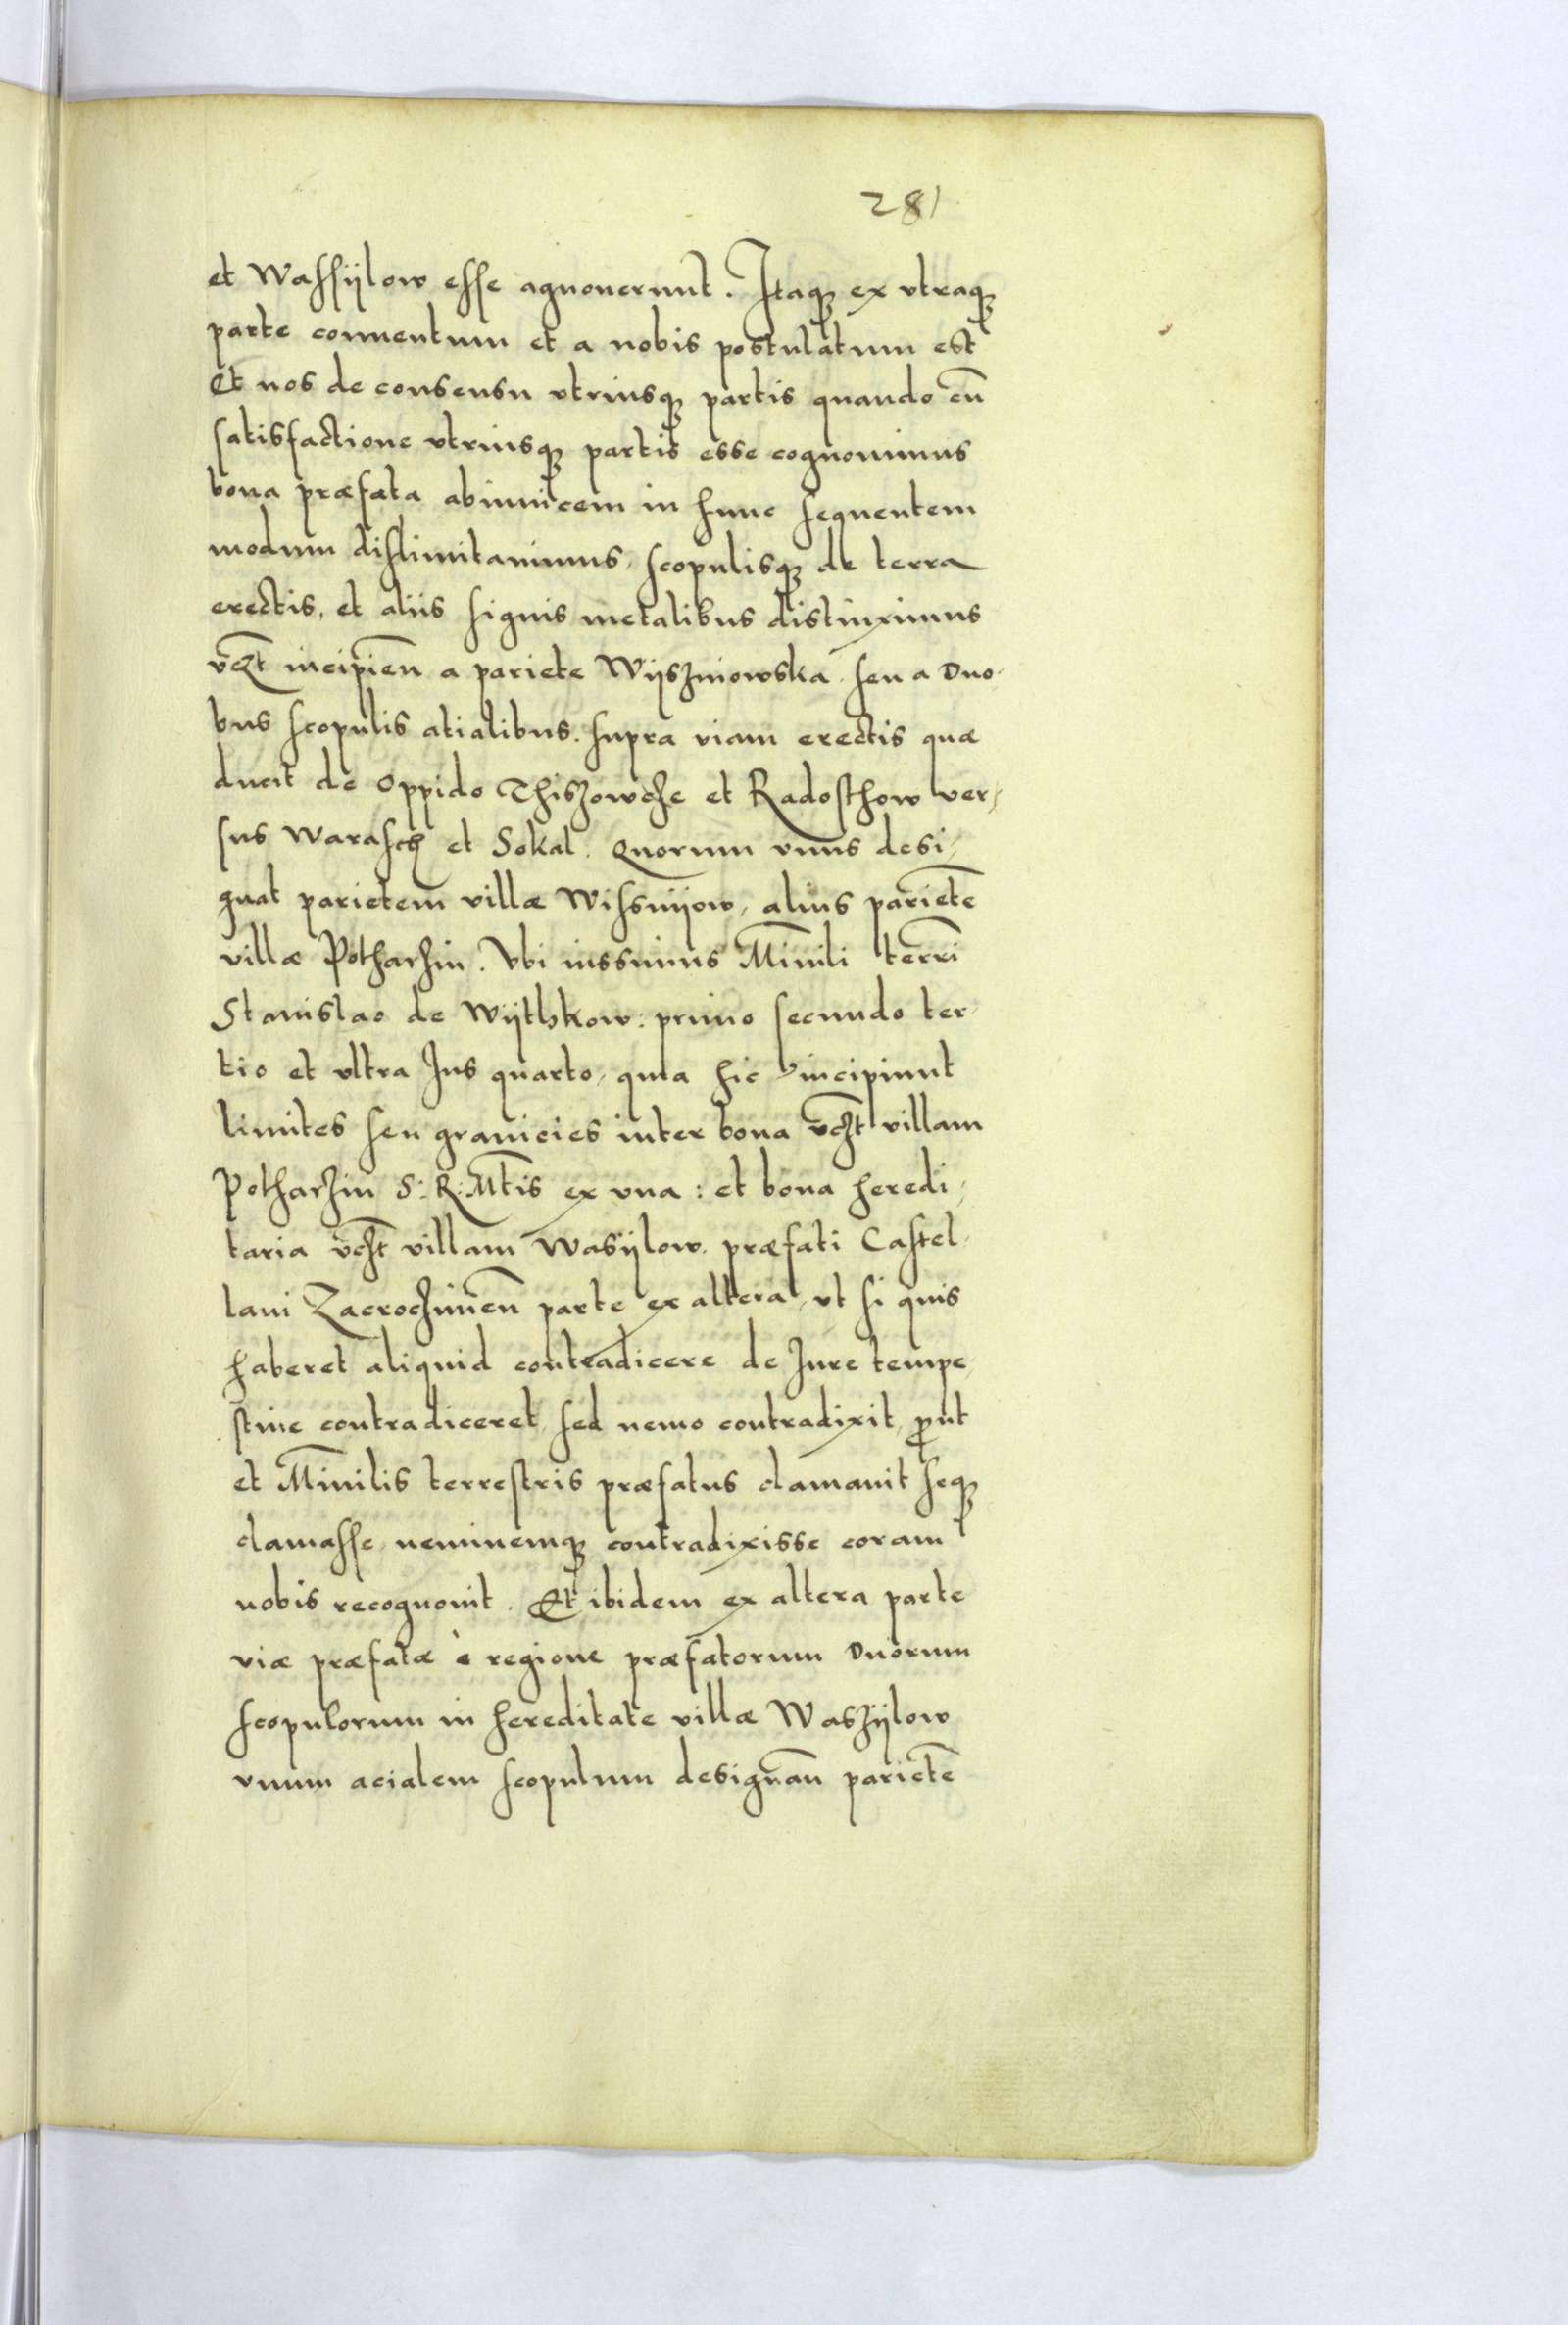 281
et Wassÿlow esse agnouerunt. Itaq₃ ex vtraq₃
parte conuentum et a nobis postulatum est
Et nos de consensu vtriusq₃ partis quando cũ
satisfactione vtriusq₃ partis esse cognouimus
bona præfata abinuicem in hunc sequentem
modum dislimitauimus, scopulisq₃ de terra
erectis, et aliis signis metalibus distinximus
vƶt incipień a pariete Wÿszniowska seu a duo-
bus scopulis atialibus. supra viam erectis quæ
ducit de oppido Thiszowcze et Radosthow ver-
sus Warasch et Sokal. Quorum vnus desi-
gnat parietem villæ Wissnijow, alius parietẽ
villæ Potharzin. Vbi iussimus Mĩnili terrĩ
Stanislao de Wÿthkow: primo secundo ter-
tio et vltra Ius quarto, quia hic incipiunt
limites seu granicies inter bona vcƶt villam
Potharzin S: R: Mtĩs ex vna: et bona heredi-
taria vcƶt villam Wasÿlow. præfati Castel-
lani Zacrocziméń parte ex altera, vt si quis
haberet aliquid contradicere de Iure tempe-
stiue contradiceret, sed nemo contradixit, prout
et Mĩnilis terrestris præfatus clamauit seq₃
clamasse, neminemq₃ contradixisse coram
nobis recognouit. Et ibidem ex altera parte
viæ præfatæ è regione præfatorum duorum
scopulorum in hereditate villæ Waszÿlow
vnum acialem scopulum designań parietẽ